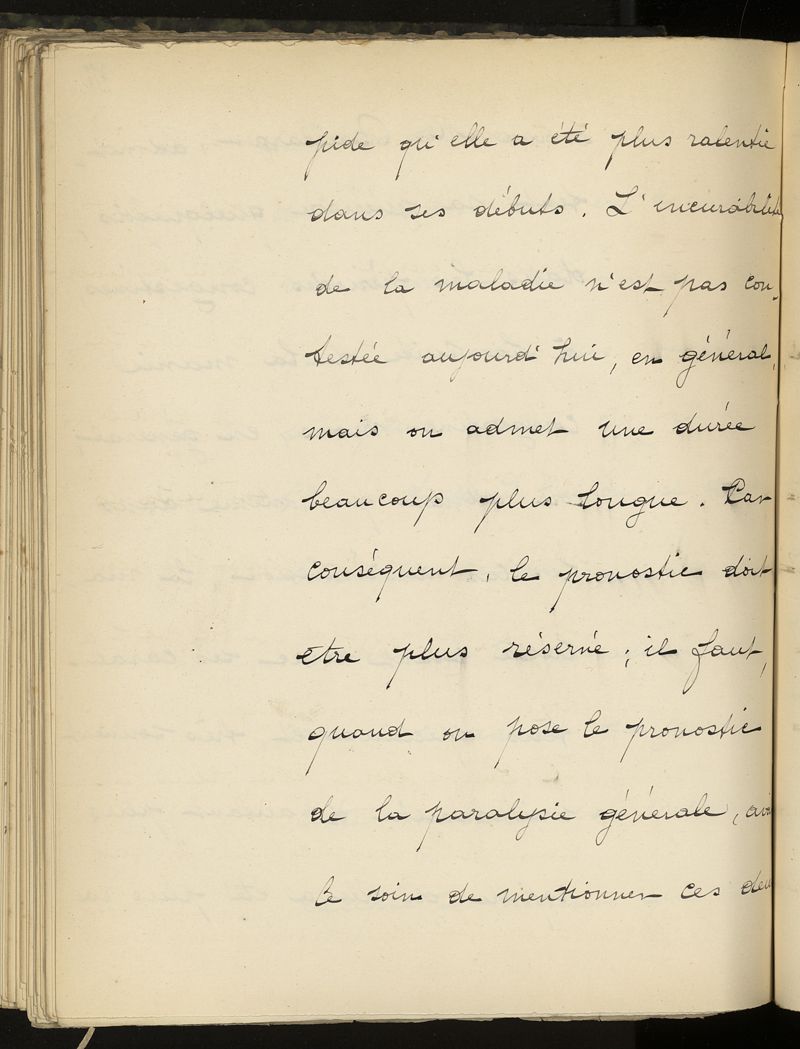 pide qu'elle a été plus ralentie
dans ses débuts. L'incurabilité
de la maladie n'est pas con-
testée aujourd'hui, en général,
mais on admet une durée
beaucoup plus longue. Par
conséquent, le pronostic doit
etre plus réservé ; il faut,
quand on pose le pronostic
de la paralysie générale, avoir
le soin de mentionner ces deux